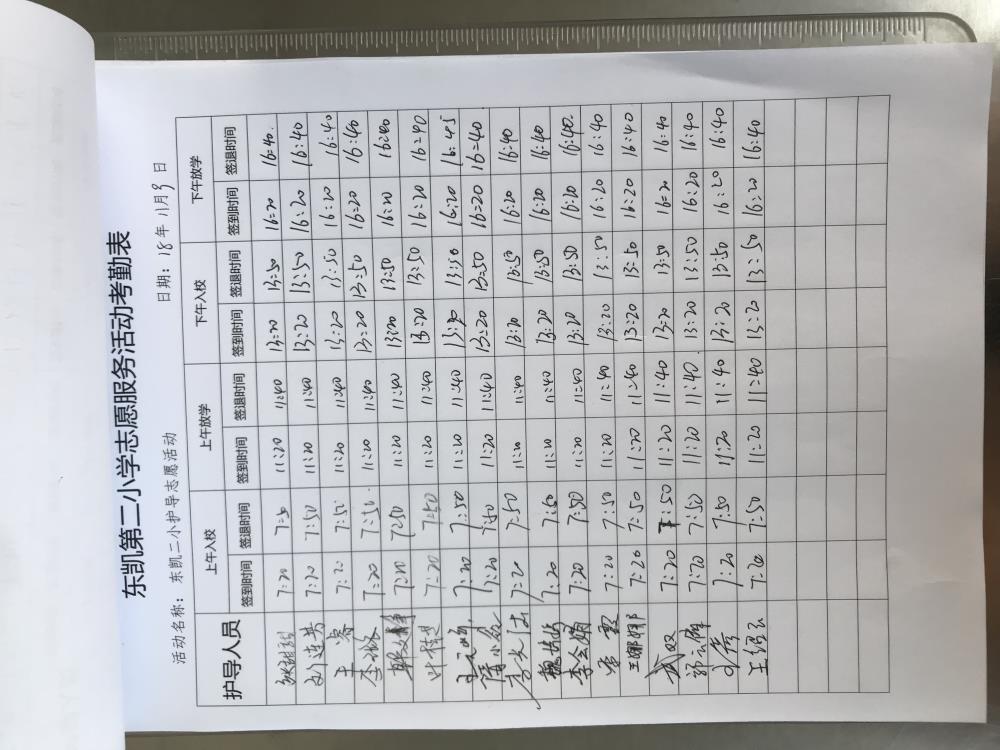 东凯第二小学志愿服务活动考勤表
活动名称：东凯二小护导志愿活动 日期：18年11月9日
护导人员 上午入校 上午放学 下午入校 下午放学
签到时间 签退时间 签到时间 签退时间 签到时间 签退时间 签到时间 签退时间
7:20 11:20 11:40 13:20 13:50 16:20 16:40
刘进英 7:20 7:50 11:20 11:40 13:20 13:50 16:20 16:40
王睿 7:20 7:50 11:20 11:40 13:20 13:50 16:20 16:40
李 7:20 7:50 11:20 11:40 13:20 13:50 16:20 16:40
7:20 7:50 11:20 11:40 13:20 13:50 16:20 16:40
叶桂芝 7:20 7:50 11:20 11:40 13:20 13:50 16:20 16:40
7:20 7:50 11:20 11:40 13:50 16:20 16:45
7:20 7:50 11:20 11:40 13:20 13:50 16:20 16:40
李文 7:20 7:50 11:20 11:40 13:20 13:50 16:20 16:40
魏 7:20 7:50 11:20 11:40 13:20 13:50 16:20 16:40
李会娟 7:20 7:50 11:20 11:40 13:20 13:50 16:20 16:40
霞 7:20 7:50 11:20 11:40 13:20 13:50 16:20 16:40
王娜娜 7:20 7:50 11:20 11:40 13:20 13:50 16:20 16:40
武双 7:20 7:50 11:20 11:40 13:20 13:50 16:20 16:40
郭 7:20 7:50 11:20 11:40 13:20 13:50 16:20 16:40
7:20 7:50 11:20 11:40 13:20 13:50 16:20 16:40
王绍云 7:20 7:50 11:20 11:40 13:20 13:50 16:20 16:40